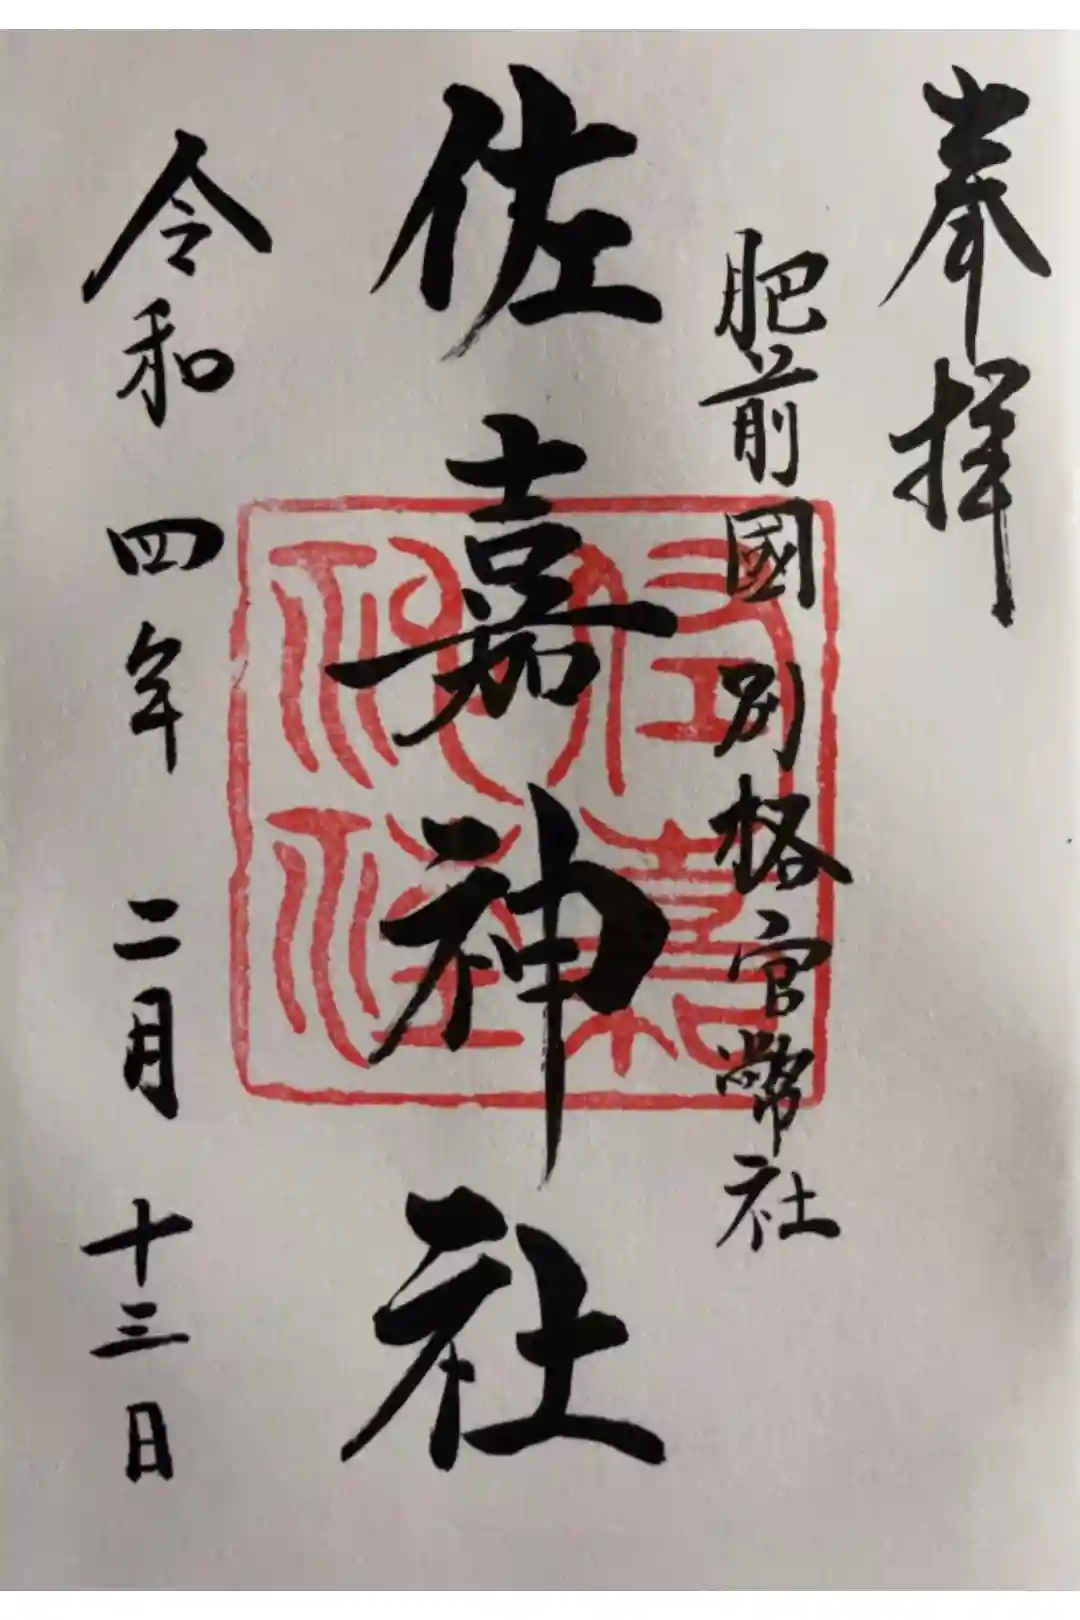 奉拝
肥前國 別格官幣社
佐嘉神社
令和四年二月十三日
佐嘉神社